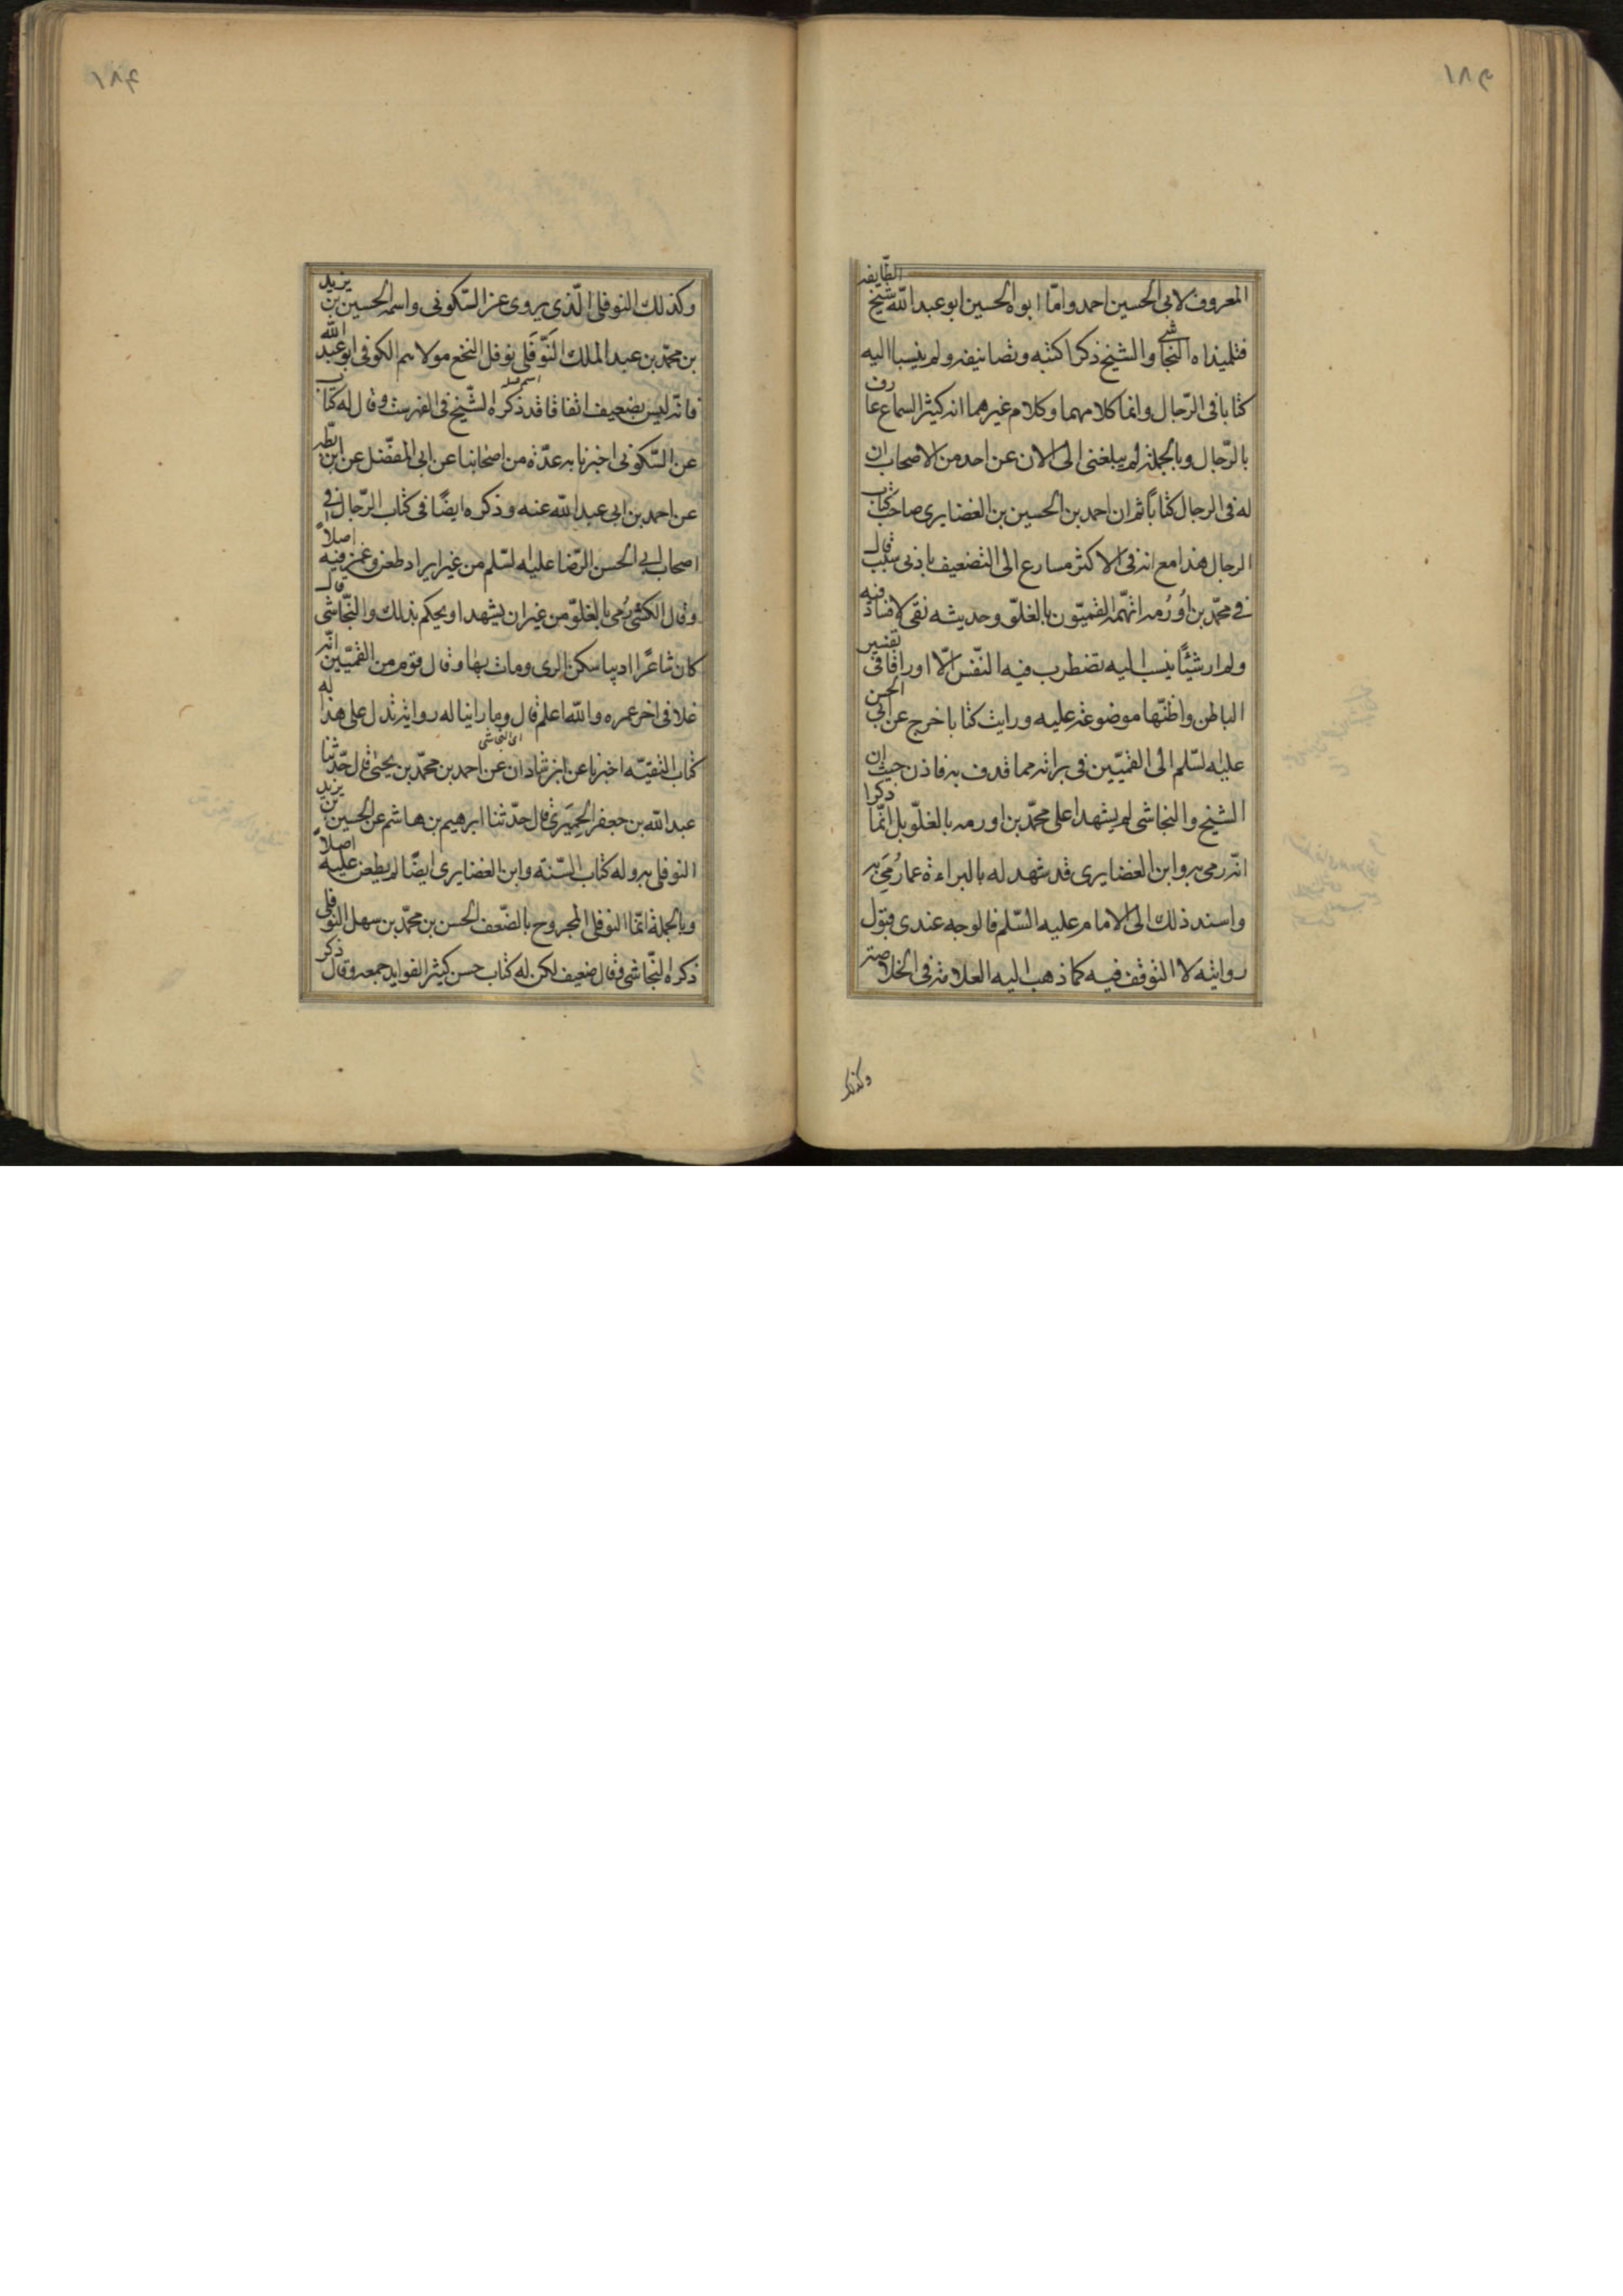 المعروف لابى الحسين احمد وامّا ابوه الحسين ابو عبد الله شيخ الطّايفه
فتلميذاه النجاشى والشيخ ذكرا كتبه وتصانيفه ولم ينسبا اليه
كتابا فى الرّجال وانما كلامهما وكلام غيرهما انه كثير السماع عارف
بالرّجال وبالجملة لم يبلغنى الى الان عن احد من الاصحاب ان
له فى الرجال كتاباً ثم ان احمد بن الحسين بن الغضايرى صاحب كتاب
الرجال هذا مع انه فى الاكثر مسارع الى التضعيف بادنى سبب قال
فى محمّد بن اُورُمه اتهمّه القميّون بالغلوّ وحديثه نقى لا فساد فيه
ولم ار شيئاً ينسب اليه تضطرب فيه النّفس الّا اوراقا فى تفسير
الباطن واظنّها موضوعة عليه ورايت كتابا خرج عن ابى الحسن
عليه السّلم الى القميّين فى براته مما قذف به فاذن حيث ان
الشيخ والنجاشى لم يشهدا على محمّد بن اورمه بالغلوّ بل انّما ذكرا
انّه رمى به وابن الغضايرى قد شهد له بالبراءة عما رُمِىَ به
واسند ذلك الى الامام عليه السّلم فالوجه عندى قبول
روايته لا التوقف فيه كما ذهب اليه العلامة فى الخلاصة
وكذلك
وكذلك النوفلى الّذى يروى عن السّكونى واسمه الحسين بن يزيد
بن محمّد بن عبد الملك النَوّفَلى نوفل النخع مولاهم الكوفى ابو عبد الله
فانّه ليس بضعيف اتفاقا قد ذكره الشّيخ فى الفهرست وقال له كتاب
عن السّكونى اخبرنا به عدّة من اصحابنا عن ابى المفضّل عن ابن بطّه
عن احمد بن ابى عبد الله عنه وذكره ايضًا فى كتاب الرّجال فى
اصحاب ابى الحسن الرّضا عليه السّلم من غير ايراد طعن وغمز فيه اصلاً
وقال الكشى رُمى بالغلوّ من غير ان يشهد او يحكم بذلك والنّجاشى قال
كان شاعرًا اديبا سكن الرى ومات بها وقال قوم من القميّين انّه
غلا فى اخر عمره والله اعلم قال وما راينا له رواية تدل على هذا له
اى النجاشى
كتاب التقيّه اخبرنا عن ابن شاذان عن احمد بن محمّد بن يحيى قال حدّثنا
عبد الله بن جعفر الحِميَرى قال حدّثنا ابرهيم بن هاشم عن الحسين بن يزيد
النوفلى به وله كتاب السّنة وابن الغضايرى ايضًا لم يطعن عليه اصلاً
وبالجملة انّما النوفلى المجروح بالضّعف الحسن بن محمّد بن سهل النوفلى
ذكره النّجاشى وقال ضعيف لكن له كتاب حسن كثير الفوايد جمعه وقال ذكر